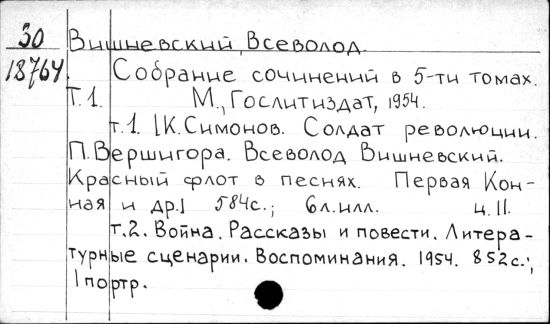 30
18764
Вишневский, Всеволод.
Собрание сочинений в 5-ти томах.
Т. 1. М., Гослитиздат, 1954.
т. 1. [К. Симонов. Солдат революции.
П. Вершигора. Всеволод Вишневский.
Красный флот в песнях. Первая Кон-
ная и др.] 584с.; 6 л. илл. ц. 11.
т. 2. Война. Рассказы и повести. Литера-
турные сценарии. Воспоминания. 1954. 852 с.;
1 портр.